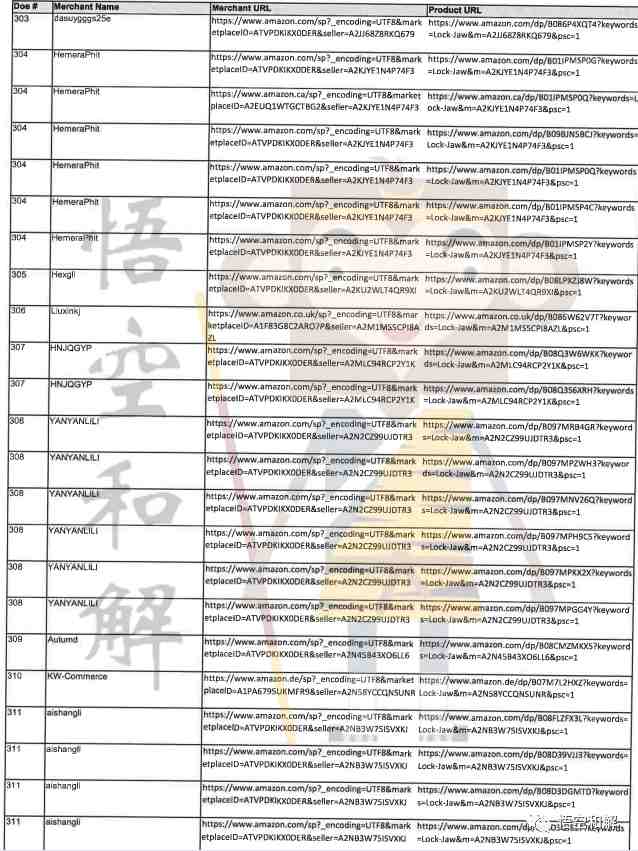 Doe # Merchant Name Merchant URL Product URL
303 dasuygggs25e https://www.amazon.com/sp?_encoding=UTF8&mark https://www.amazon.com/dp/B086P4XQT4?keywords
etplaceID=ATVPDKIKX0DER&seller=A2JJ68Z8RKQ679 =Lock-Jaw&m=A2JJ68Z8RKQ679&psc=1
304 HemeraPhit https://www.amazon.com/sp?_encoding=UTF8&mark https://www.amazon.com/dp/B01IPMSP0G?keywords
etplaceID=ATVPDKIKX0DER&seller=A2KJYE1N4P74F3 =Lock-Jaw&m=A2KJYE1N4P74F3&psc=1
304 HemeraPhit https://www.amazon.ca/sp?_encoding=UTF8&market https://www.amazon.ca/dp/B01IPMSP0Q?keywords=L
placeID=A2EUQ1WTGCTBG2&seller=A2KJYE1N4P74F3 ock-Jaw&m=A2KJYE1N4P74F3&psc=1
304 HemeraPhit https://www.amazon.com/sp?_encoding=UTF8&mark https://www.amazon.com/dp/B098JNSBCJ?keywords
etplaceID=ATVPDKIKX0DER&seller=A2KJYE1N4P74F3 =Lock-Jaw&m=A2KJYE1N4P74F3&psc=1
304 HemeraPhit https://www.amazon.com/sp?_encoding=UTF8&mark https://www.amazon.com/dp/B01IPMSP0Q?keywords
etplaceID=ATVPDKIKX0DER&seller=A2KJYE1N4P74F3 =Lock-Jaw&m=A2KJYE1N4P74F3&psc=1
304 HemeraPhit https://www.amazon.com/sp?_encoding=UTF8&mark https://www.amazon.com/dp/B01IPMSP4C?keywords
etplaceID=ATVPDKIKX0DER&seller=A2KJYE1N4P74F3 =Lock-Jaw&m=A2KJYE1N4P74F3&psc=1
304 HemeraPhit https://www.amazon.com/sp?_encoding=UTF8&mark https://www.amazon.com/dp/B01IPMSP2Y?keywords
etplaceID=ATVPDKIKX0DER&seller=A2KJYE1N4P74F3 =Lock-Jaw&m=A2KJYE1N4P74F3&psc=1
305 Hexgli https://www.amazon.com/sp?_encoding=UTF8&mark https://www.amazon.com/dp/B08LPXZJ8W?keywords
etplaceID=ATVPDKIKX0DER&seller=A2KU2WLT4QR9XJ =Lock-Jaw&m=A2KU2WLT4QR9XJ&psc=1
306 Liuxinkj https://www.amazon.co.uk/sp?_encoding=UTF8&mar https://www.amazon.co.uk/dp/B086W62V7T?keywor
ketplaceID=A1F83G8C2ARO7P&seller=A2M1MS5CPI8A ds=Lock-Jaw&m=A2M1MS5CPI8AZL&psc=1
ZL
307 HNJQGYP https://www.amazon.com/sp?_encoding=UTF8&mark https://www.amazon.com/dp/B08Q3W6WKK?keywor
etplaceID=ATVPDKIKX0DER&seller=A2MLC94RCP2Y1K ds=Lock-Jaw&m=A2MLC94RCP2Y1K&psc=1
307 HNJQGYP https://www.amazon.com/sp?_encoding=UTF8&mark https://www.amazon.com/dp/B08Q3S6XRH?keywords
etplaceID=ATVPDKIKX0DER&seller=A2MLC94RCP2Y1K =Lock-Jaw&m=A2MLC94RCP2Y1K&psc=1
308 YANYANLILI https://www.amazon.com/sp?_encoding=UTF8&mark https://www.amazon.com/dp/B097MRB4GR?keyword
etplaceID=ATVPDKIKX0DER&seller=A2N2CZ99UJDTR3 s=Lock-Jaw&m=A2N2CZ99UJDTR3&psc=1
308 YANYANLILI https://www.amazon.com/sp?_encoding=UTF8&mark https://www.amazon.com/dp/B097MPZWH3?keywor
etplaceID=ATVPDKIKX0DER&seller=A2N2CZ99UJDTR3 ds=Lock-Jaw&m=A2N2CZ99UJDTR3&psc=1
308 YANYANLILI https://www.amazon.com/sp?_encoding=UTF8&mark https://www.amazon.com/dp/B097MNV26Q?keyword
etplaceID=ATVPDKIKX0DER&seller=A2N2CZ99UJDTR3 s=Lock-Jaw&m=A2N2CZ99UJDTR3&psc=1
308 YANYANLILI https://www.amazon.com/sp?_encoding=UTF8&mark https://www.amazon.com/dp/B097MPH9C5?keywords
etplaceID=ATVPDKIKX0DER&seller=A2N2CZ99UJDTR3 =Lock-Jaw&m=A2N2CZ99UJDTR3&psc=1
308 YANYANLILI https://www.amazon.com/sp?_encoding=UTF8&mark https://www.amazon.com/dp/B097MPKX2X?keywords
etplaceID=ATVPDKIKX0DER&seller=A2N2CZ99UJDTR3 =Lock-Jaw&m=A2N2CZ99UJDTR3&psc=1
308 YANYANLILI https://www.amazon.com/sp?_encoding=UTF8&mark https://www.amazon.com/dp/B097MPGG4Y?keywords
etplaceID=ATVPDKIKX0DER&seller=A2N2CZ99UJDTR3 =Lock-Jaw&m=A2N2CZ99UJDTR3&psc=1
309 Autumd https://www.amazon.com/sp?_encoding=UTF8&mark https://www.amazon.com/dp/B08CMZMKX5?keywords
etplaceID=ATVPDKIKX0DER&seller=A2N45B43XO6LL6 =Lock-Jaw&m=A2N45B43XO6LL6&psc=1
310 KW-Commerce https://www.amazon.de/sp?_encoding=UTF8&market https://www.amazon.de/dp/B07M7L2HXZ?keywords=
placeID=A1PA6795UKMFR9&seller=A2N58YCCQNSUNR Lock-Jaw&m=A2N58YCCQNSUNR&psc=1
311 aishangli https://www.amazon.com/sp?_encoding=UTF8&mark https://www.amazon.com/dp/B08FLZFX3L?keywords=
etplaceID=ATVPDKIKX0DER&seller=A2NB3W75ISVXKJ Lock-Jaw&m=A2NB3W75ISVXKJ&psc=1
311 aishangli https://www.amazon.com/sp?_encoding=UTF8&mark https://www.amazon.com/dp/B08D39VJJ3?keywords=
etplaceID=ATVPDKIKX0DER&seller=A2NB3W75ISVXKJ Lock-Jaw&m=A2NB3W75ISVXKJ&psc=1
311 aishangli https://www.amazon.com/sp?_encoding=UTF8&mark https://www.amazon.com/dp/B08D3DGMTD?keywords
etplaceID=ATVPDKIKX0DER&seller=A2NB3W75ISVXKJ =Lock-Jaw&m=A2NB3W75ISVXKJ&psc=1
311 aishangli https://www.amazon.com/sp?_encoding=UTF8&mark
etplaceID=ATVPDKIKX0DER&seller=A2NB3W75ISVXKJ =Lock-Jaw&m=A2NB3W75ISVXKJ&psc=1
悟
空
和
解
悟空和解